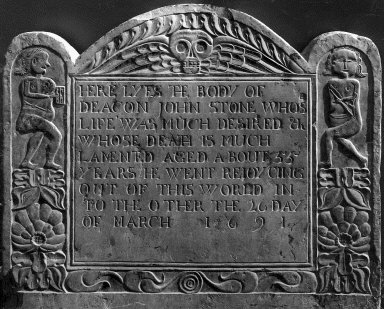 HERE LYES Yͤ BODY OF
DEACON JOHN STONE WHOS
LIFE WAS MUCH DESIRED &
WHOSE DEATH IS MUCH
LAMENTED AGED ABOUTE 55
YEARS HE WENT REJOYCING
OUT OF THIS WORLD IN
TO THE OTHER THE 26 DAY
OF MARCH 1691